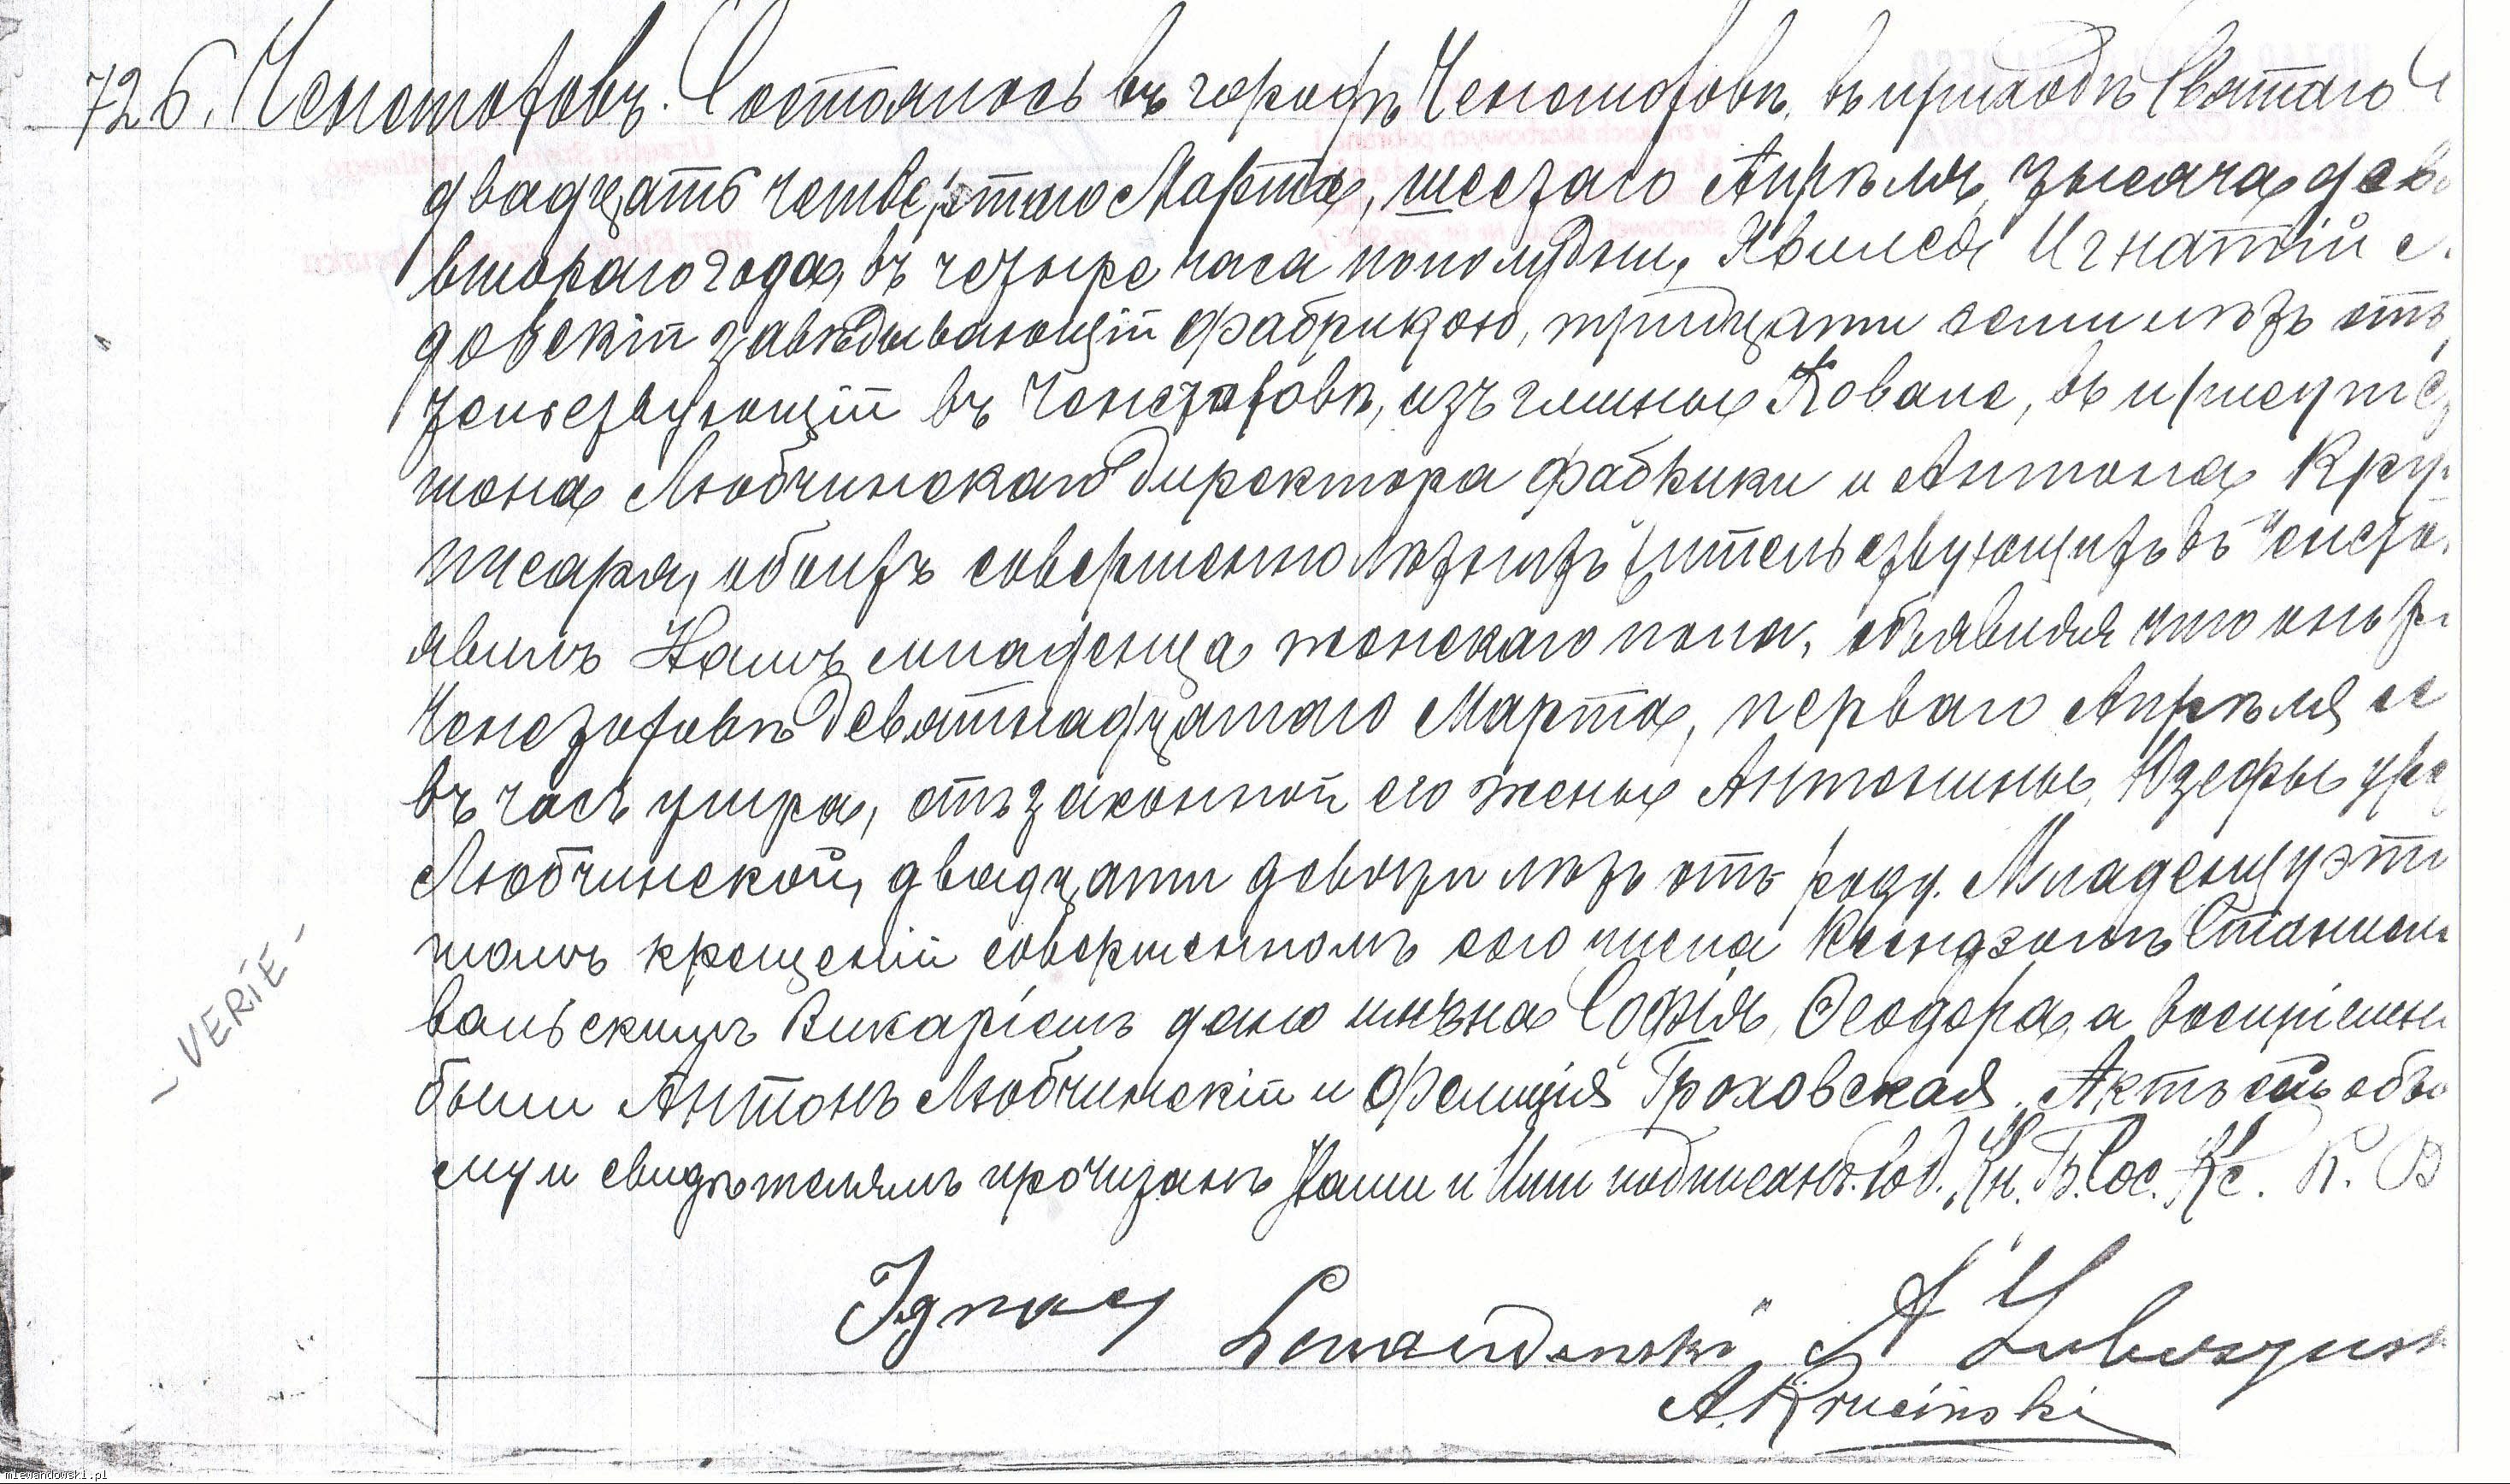 726. Ченстоховъ. Состоялось въ городѣ Ченстоховѣ, въ приходѣ Святаго
двадцать четвертаго Марта, шестаго Апрѣля, тысяча дев
втораго года, въ четыре часа пополудни, Явился Игнатій Л
довскій завѣдывающій фабрикою, тридцати семи лѣтъ отъ
тельствующій въ Ченстоховѣ, изъ гмины Ковале, въ присутс
тона Любчинскаго директора фабрики и Антона Кру
писаря, обоихъ совершеннолѣтнихъ жительствующихъ въ Ченсто
явилъ Намъ младенца женскаго пола, объявляя что оный р
Ченстоховѣ девятнадцатаго Марта, перваго Апрѣля се
въ часъ утра, отъ законной его жены Антонины, Юзефы уро
Любчинской, двадцати девяти лѣтъ отъ роду. Младенцу эт
томъ крещеніи совершенномъ сего числа Ксендзомъ Станисл
вольскимъ Викаріемъ дано имѣна Софія, Ѳеодора, а воспріемн
были Антонъ Любчинскій и Фелиція Гроховская. Актъ сей объ
ему и свидѣтелямъ прочитанъ Нами и Ими подписанъ. Сод. Кн. Б. Сос. Кс. К. В
Ignacy Lewandowski A Lubczyńsk
A. Kruciński
- VERIE -
mlewandowski.pl